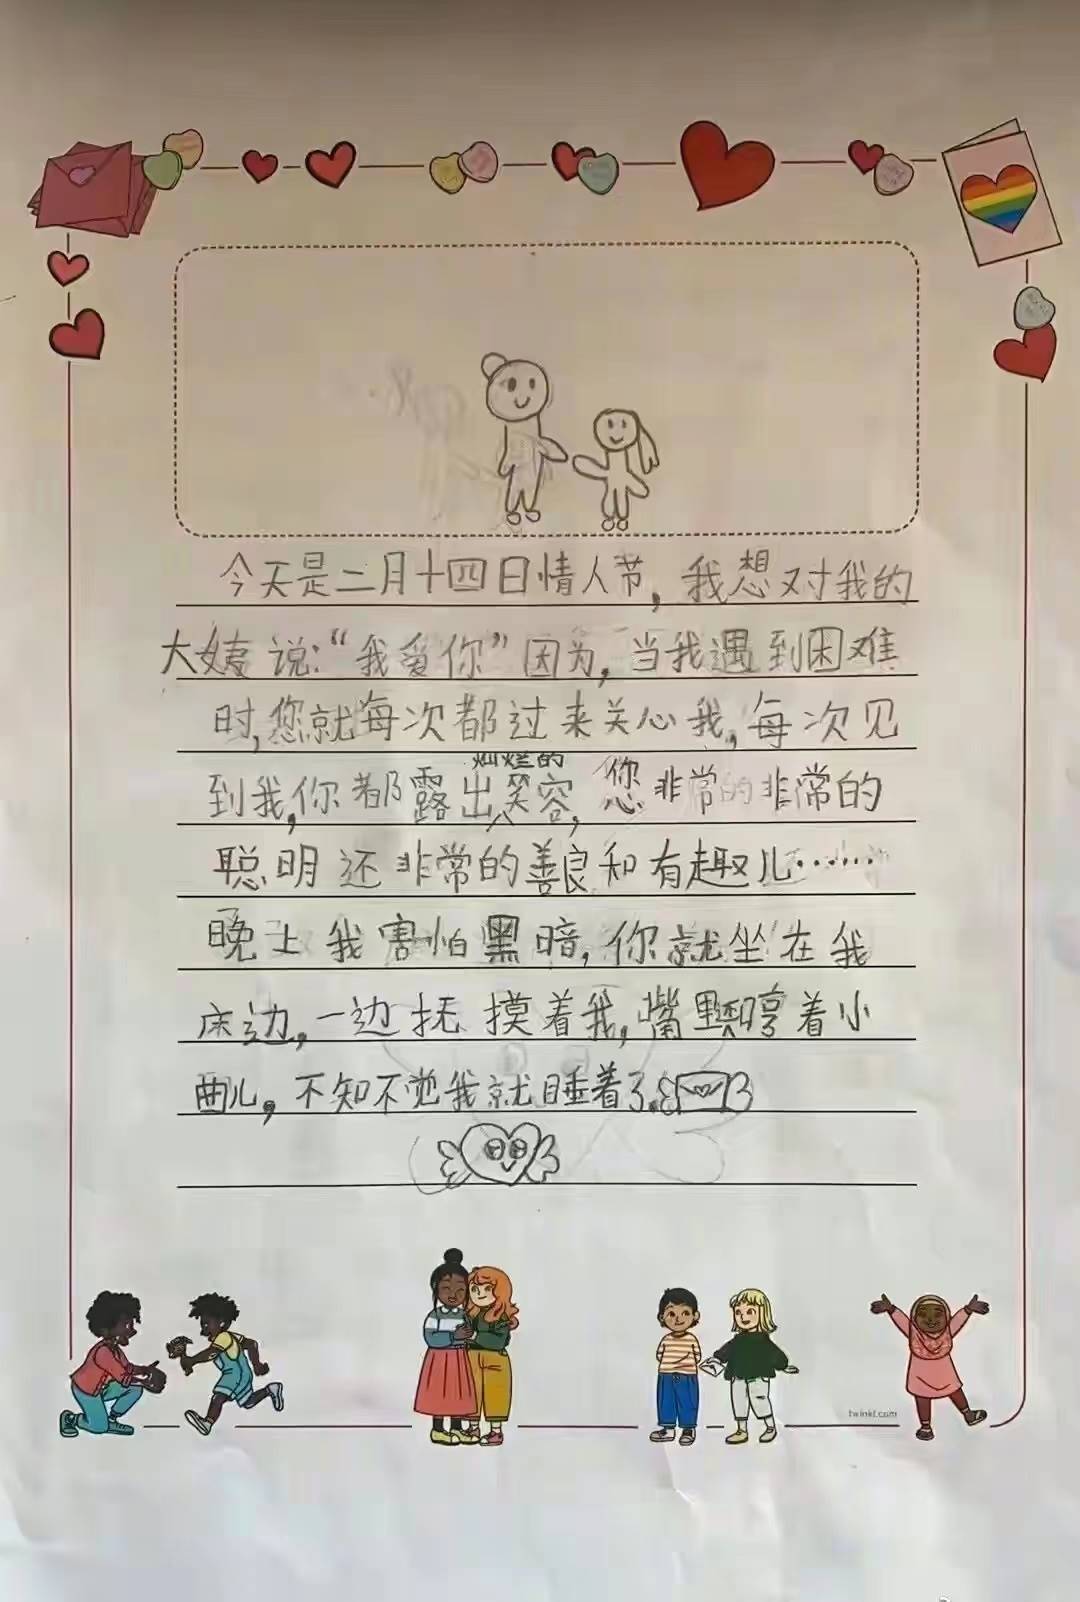 今天是二月十四日情人节，我想对我的
大姨说：“我爱你”因为，当我遇到困难
时，您就每次都过来关心我，每次见
到我，你都露出灿烂的笑容，您非常的非常的
聪明还非常的善良和有趣儿……
晚上我害怕黑暗，你就坐在我
床边，一边抚摸着我，嘴里哼着小
曲儿，不知不觉我就睡着了。
twinkl.com